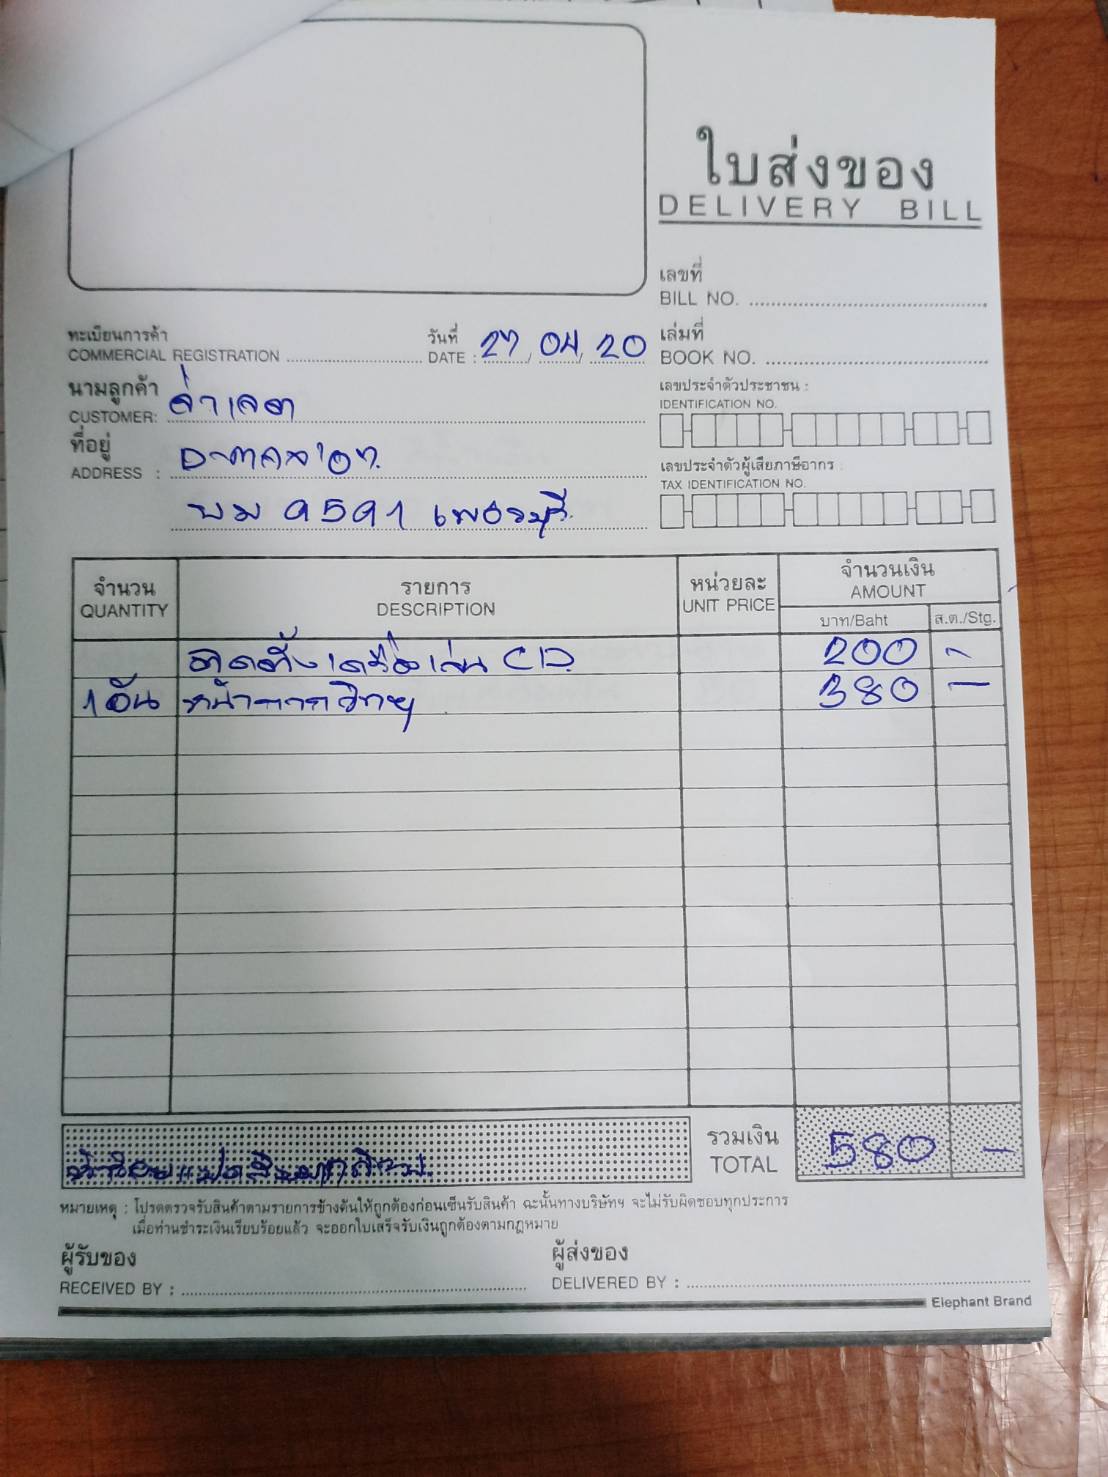 ใบส่งของ
DELIVERY BILL
เลขที่
BILL NO.
ทะเบียนการค้า
COMMERCIAL REGISTRATION
วันที่
DATE : 27, 04, 20
เล่มที่
BOOK NO.
นามลูกค้า
CUSTOMER:
เลขประจำตัวประชาชน :
IDENTIFICATION NO.
ที่อยู่
ADDRESS :
เลขประจำตัวผู้เสียภาษีอากร :
TAX IDENTIFICATION NO.
เพชรบุรี
จำนวน รายการ หน่วยละ จำนวนเงิน
QUANTITY DESCRIPTION UNIT PRICE AMOUNT
บาท/Baht ส.ต./Stg.
ติดตั้งเครื่องเล่น CD. 200 -
1 อัน หน้ากากวิทยุ 380 -
รวมเงิน
TOTAL 580 -
หมายเหตุ : โปรดตรวจรับสินค้าตามรายการข้างต้นให้ถูกต้องก่อนเซ็นรับสินค้า ฉะนั้นทางบริษัทฯ จะไม่รับผิดชอบทุกประการ
เมื่อท่านชำระเงินเรียบร้อยแล้ว จะออกใบเสร็จรับเงินถูกต้องตามกฎหมาย
ผู้รับของ
RECEIVED BY :
ผู้ส่งของ
DELIVERED BY :
Elephant Brand